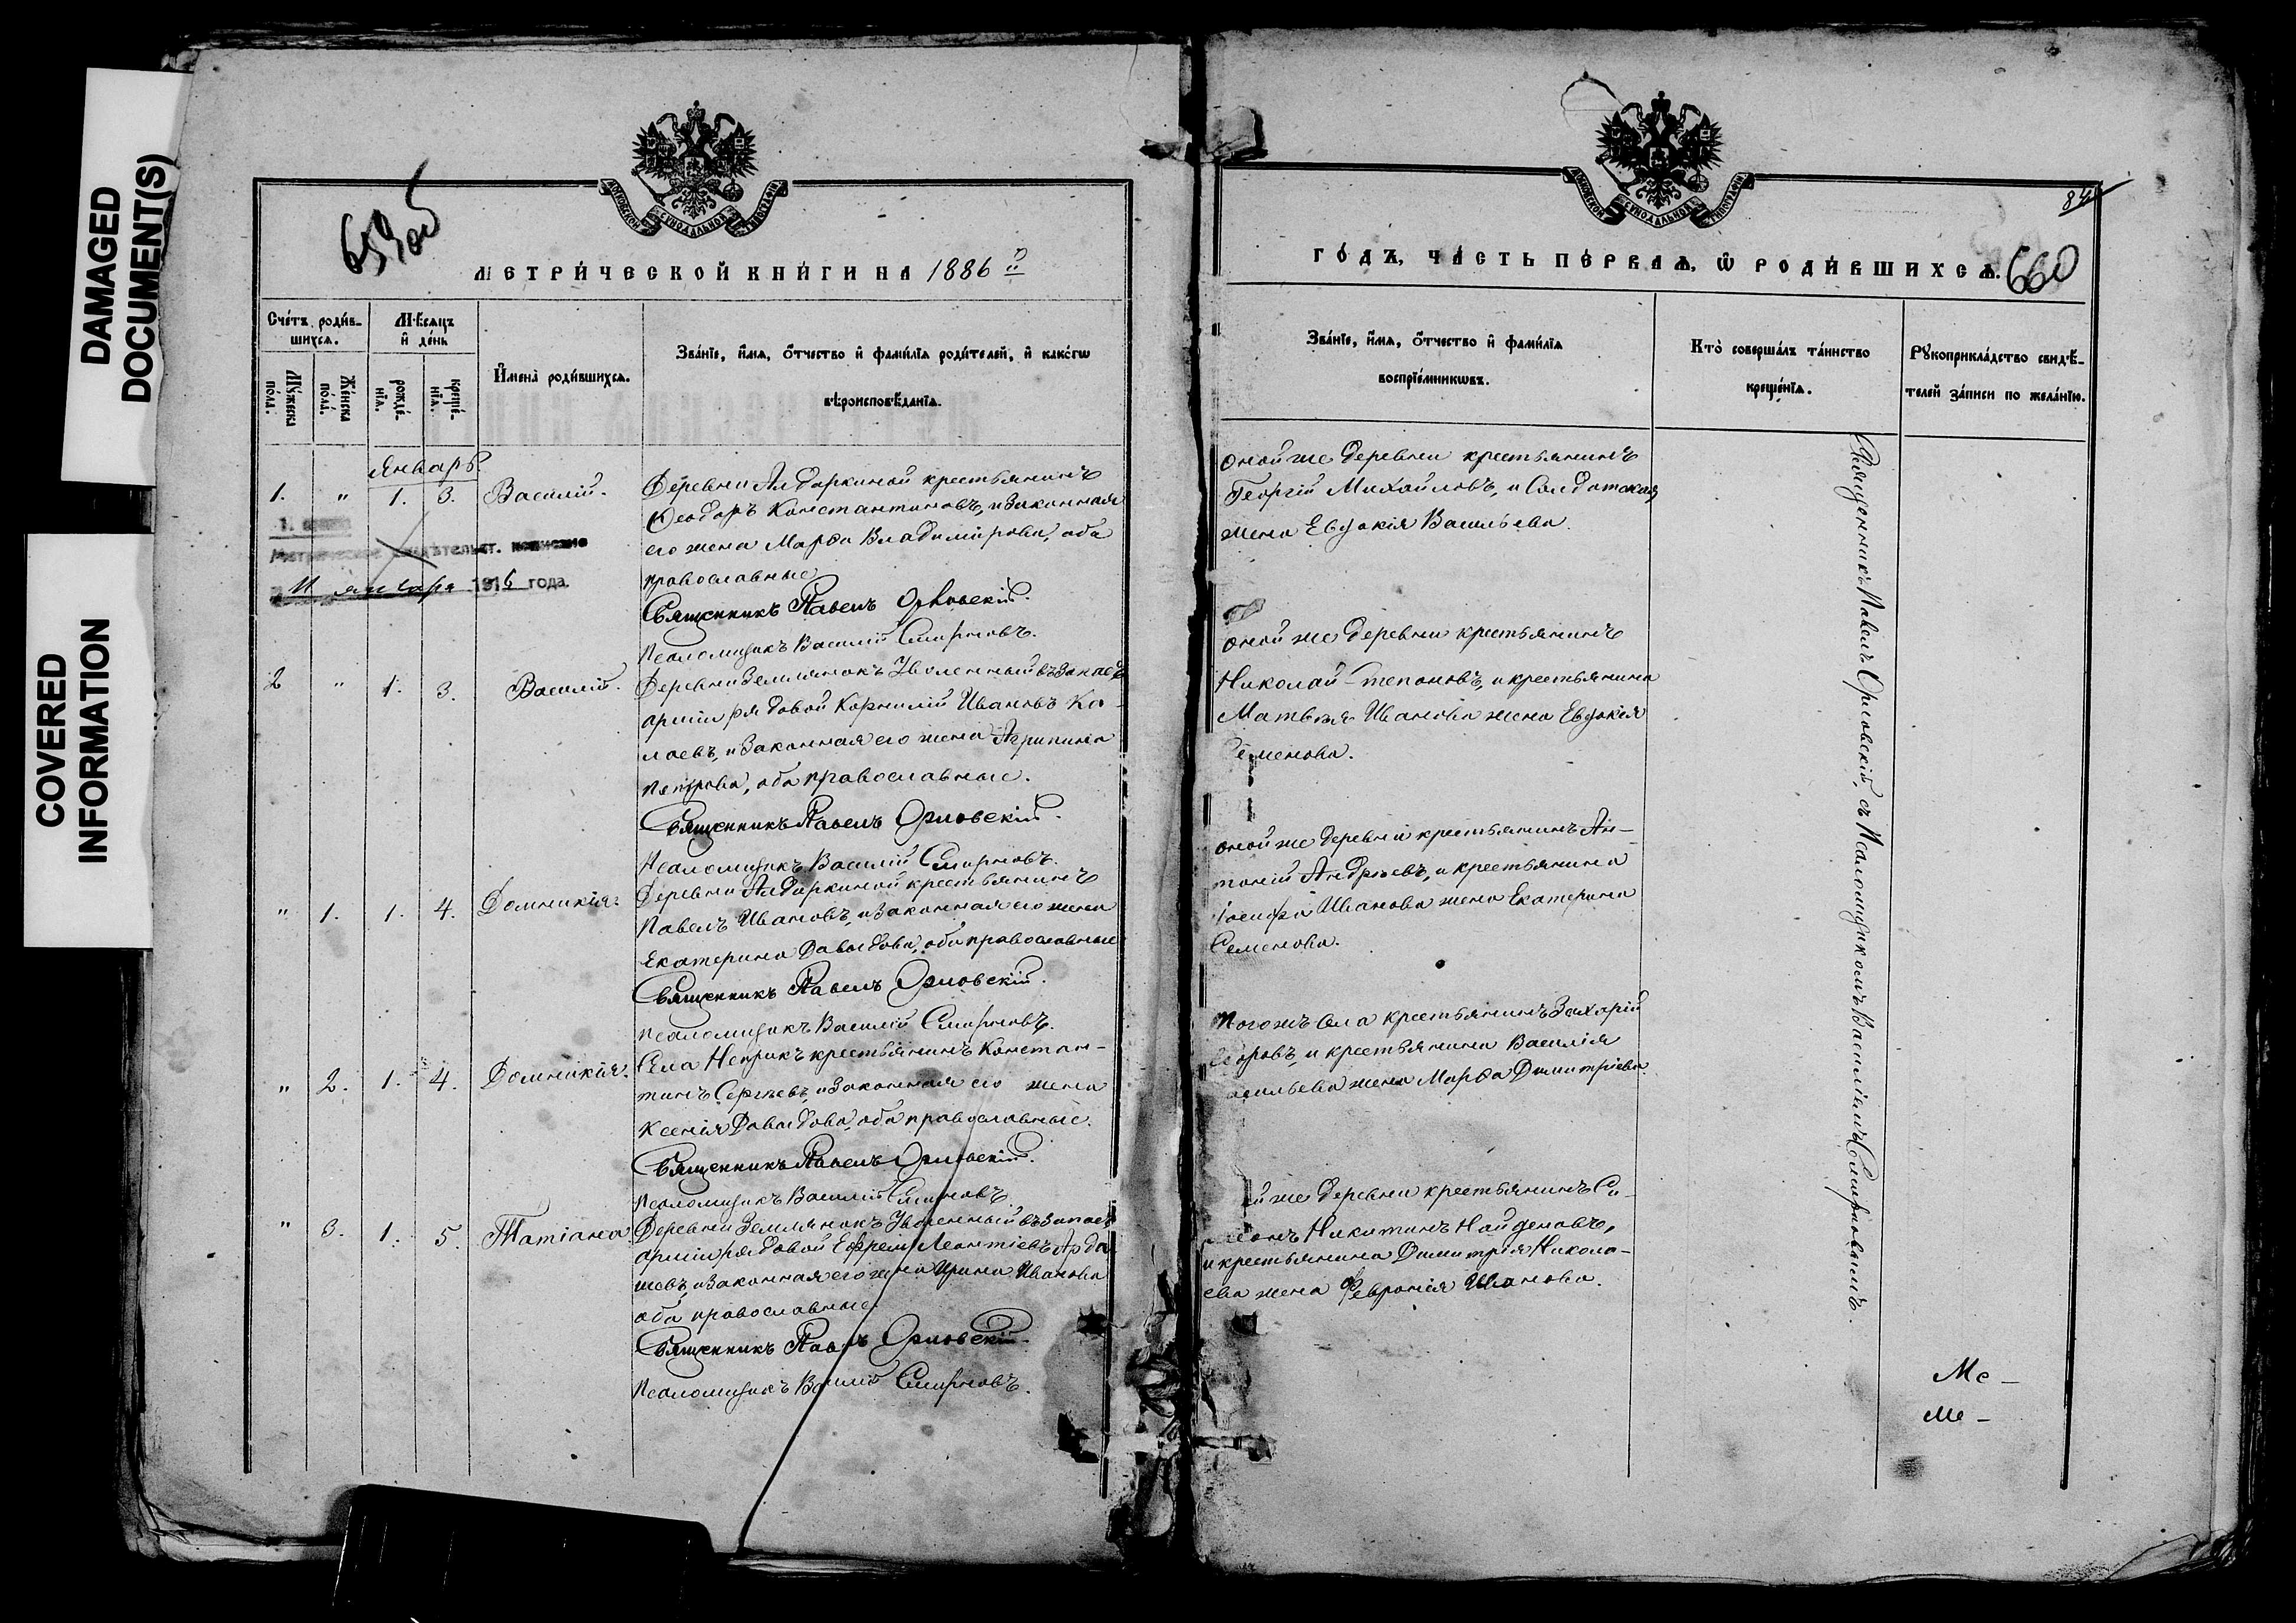 DAMAGED
DOCUMENT(S)
COVERED
INFORMATION
МОСКОВСКОЙ СѴНОДАЛЬНОЙ ТИПОГРАФІИ
659 об
МЕТРИ́ЧЕСКОЙ КНИ́ГИ НА 1886 й
Сче́тъ роди́в-
шихсѧ.
Мѣ́сѧцъ
и҆ де́нь
Мꙋ́жеска
по́ла.
Же́нска
по́ла.
рожде́-
нїѧ.
креще́-
нїѧ.
И҆мена̀ роди́вшихсѧ.
Зва́нїе, и҆́мѧ, ѻ҆́тчество и҆ фами́лїѧ роди́телей, и҆ како́гѡ
вѣроисповѣ́данїѧ.
Январь.
1. " 1. 3. Василій.
Деревни Алдаркиной крестьянинъ
Ѳеодоръ Константиновъ, и законная
его жена Марѳа Владимірова, оба
православные
Священникъ Павелъ Орловскій.
Псаломщикъ Василій Смирновъ.
11 января 1916 года.
2 " 1. 3. Василій.
Деревни Землянокъ Уволенный въ запасъ
арміи рядовой Корнилій Ивановъ Ка-
лаевъ, и законная его жена Агрипина
Петрова, оба православные.
Священникъ Павелъ Орловскій.
Псаломщикъ Василій Смирновъ.
" 1. 1. 4. Домникія.
Деревни Алдаркиной крестьянинъ
Павелъ Ивановъ, и законная его жена
Екатерина Давыдова, оба православные
Священникъ Павелъ Орловскій.
Псаломщикъ Василій Смирновъ.
" 2. 1. 4. Домникія.
Села Неприкъ крестьянинъ Констан-
тинъ Сергѣевъ, и законная его жена
Ксенія Давыдова, оба православные.
Священникъ Павелъ Орловскій.
Псаломщикъ Василій Смирновъ.
" 3. 1. 5. Татіана
Деревни Землянокъ Уволенный въ запасъ
арміи рядовой Ефремъ Леонтіевъ Арда-
шевъ, и законная его жена Ирина Иванова
оба православные.
Священникъ Павелъ Орловскій.
Псаломщикъ Василій Смирновъ.
МОСКОВСКОЙ СѴНОДАЛЬНОЙ ТИПОГРАФІИ
84
ГО́ДЪ, ЧА́СТЬ ПЕ́РВАѦ, Ѡ҆ РОДИ́ВШИХСѦ.
660
Зва́нїе, и҆́мѧ, ѻ҆́тчество и҆ фами́лїѧ
воспрїе́мникѡвъ.
Кто̀ соверша́лъ та́инство
креще́нїѧ.
Рꙋкоприкла́дство свидѣ́-
телей за́писи по жела́нїю.
оной же деревни крестьянинъ
Георгій Михайловъ, и Солдатская
жена Евдокія Васильева.
оной же деревни крестьянинъ
Николай Степановъ, и крестьянина
Матвѣя Иванова жена Евдокія
Семенова.
оной же деревни крестьянинъ Ан-
тоній Андреевъ, и крестьянина
Іосифа Иванова жена Екатерина
Семенова.
Тогожъ села крестьянинъ Захарій
и крестьянина Василія
жена Марѳа Димитріева
же деревни крестьянинъ Си-
меонъ Никитинъ Найденовъ,
и крестьянина Димитрія Никола-
ева жена Февронія Иванова.
Священникъ Павелъ Орловскій, съ Псаломщикомъ Василіемъ Смирновымъ.
Ме-
Ме-